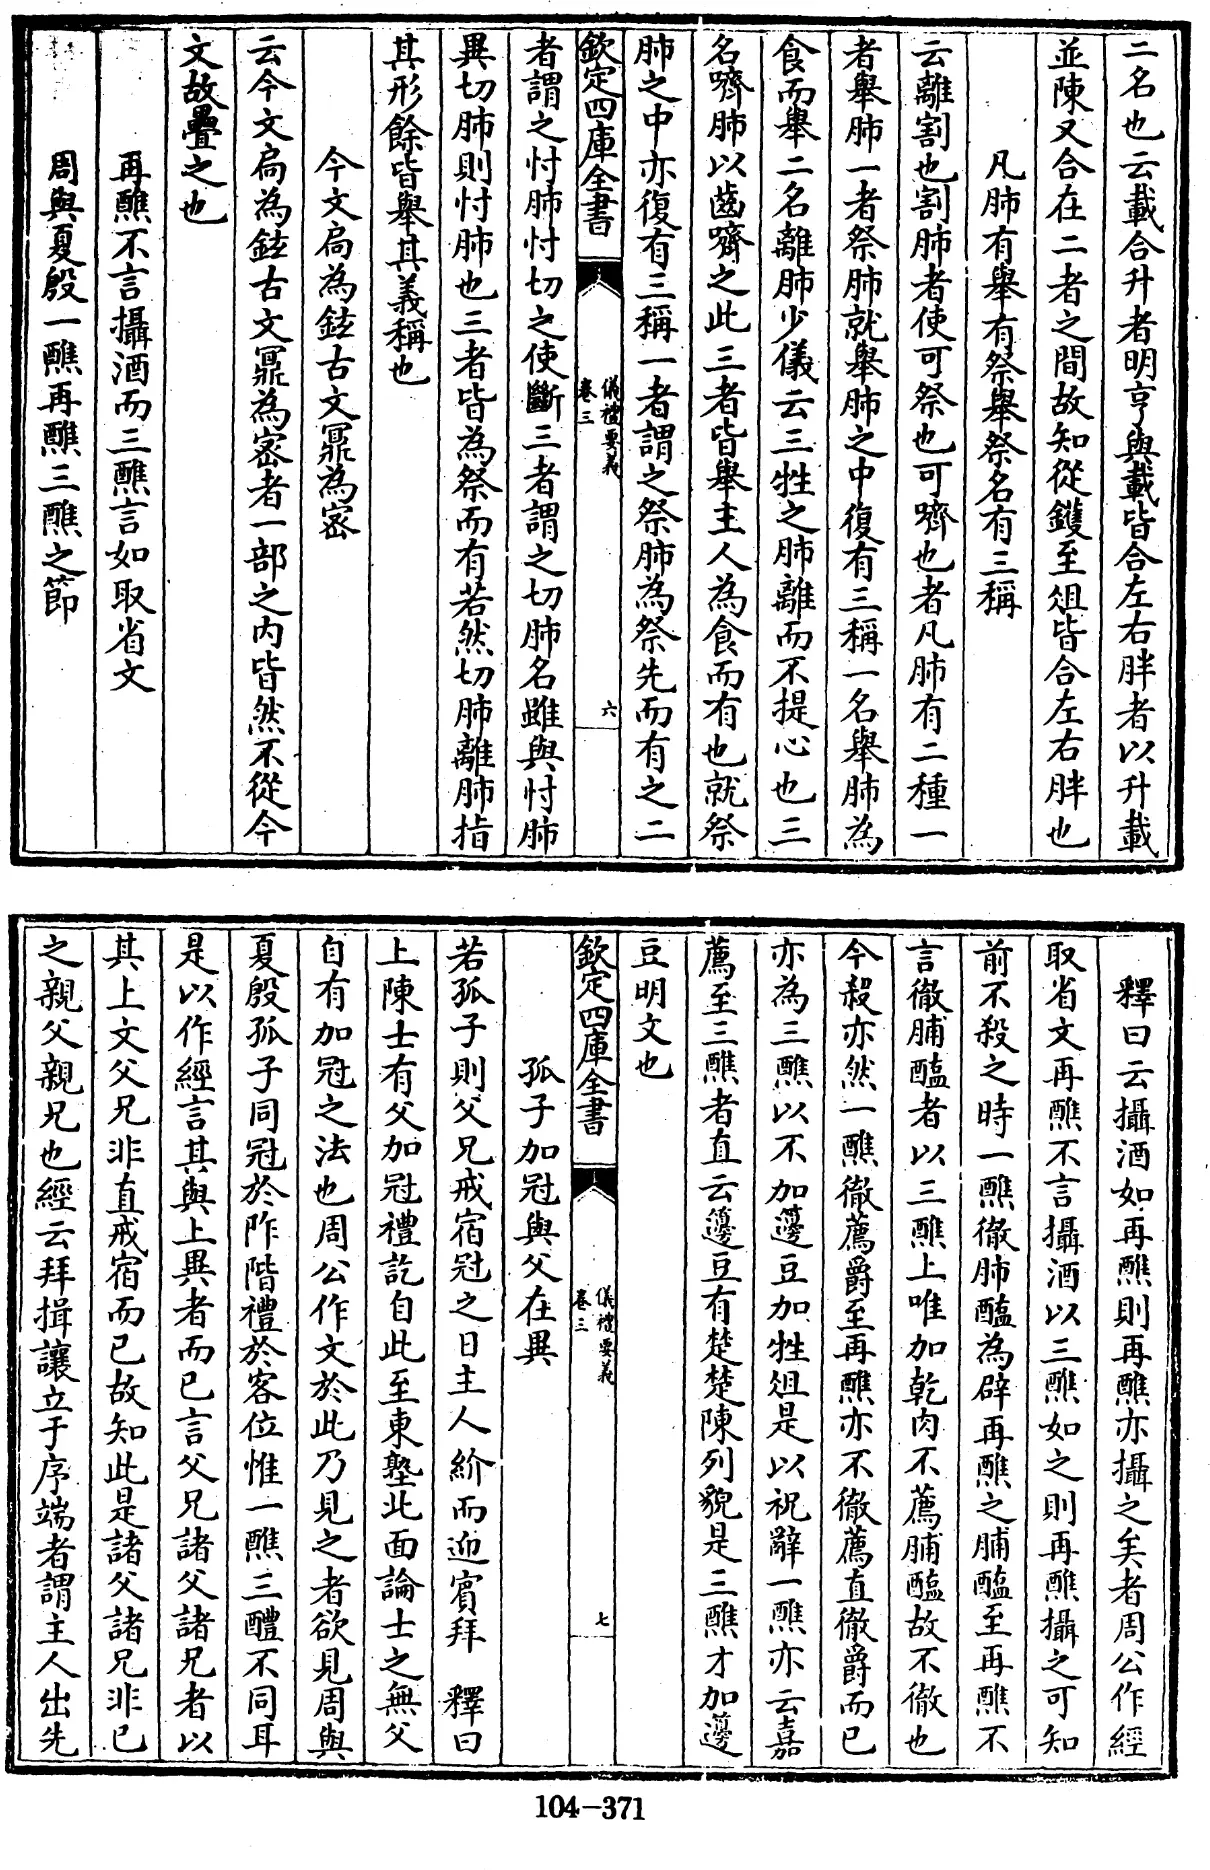 二名也云載合升者明亨與載皆合左右胖者以升載
並陳又合在二者之間故知從鑊至俎皆合左右胖也
凡肺有舉有祭舉祭名有三稱
云離割也割肺者使可祭也可嚌也者凡肺有二種一
者舉肺一者祭肺就舉肺之中復有三稱一名舉肺為
食而舉二名離肺少儀云三牲之肺離而不提心也三
名嚌肺以齒嚌之此三者皆舉主人為食而有也就祭
肺之中亦復有三稱一者謂之祭肺為祭先而有之二
欽定四庫全書
儀禮要義
卷三
六
者謂之忖肺忖切之使斷三者謂之切肺名雖與忖肺
異切肺則忖肺也三者皆為祭而有若然切肺離肺指
其形餘皆舉其義稱也
今文扃為鉉古文鼏為密
云今文扃為鉉古文鼏為密者一部之内皆然不從今
文故疊之也
再醮不言攝酒而三醮言如取省文
周與夏殷一醮再醮三醮之節
釋曰云攝酒如再醮則再醮亦攝之矣者周公作經
取省文再醮不言攝酒以三醮如之則再醮攝之可知
前不殺之時一醮徹肺醢為辟再醮之脯醢至再醮不
言徹脯醢者以三醮上唯加乾肉不薦脯醢故不徹也
今殺亦然一醮徹薦爵至再醮亦不徹薦直徹爵而已
亦為三醮以不加籩豆加牲俎是以祝辭一醮亦云嘉
薦至三醮者直云籩豆有楚楚陳列貌是三醮才加籩
豆明文也
欽定四庫全書
儀禮要義
卷三
七
孤子加冠與父在異
若孤子則父兄戒宿冠之日主人紒而迎賓拜 釋曰
上陳士有父加冠禮訖自此至東塾北面論士之無父
自有加冠之法也周公作文於此乃見之者欲見周與
夏殷孤子同冠於阼階禮於客位惟一醮三醴不同耳
是以作經言其與上異者而已言父兄諸父諸兄者以
其上文父兄非直戒宿而已故知此是諸父諸兄非已
之親父親兄也經云拜揖讓立于序端者謂主人出先
104-371